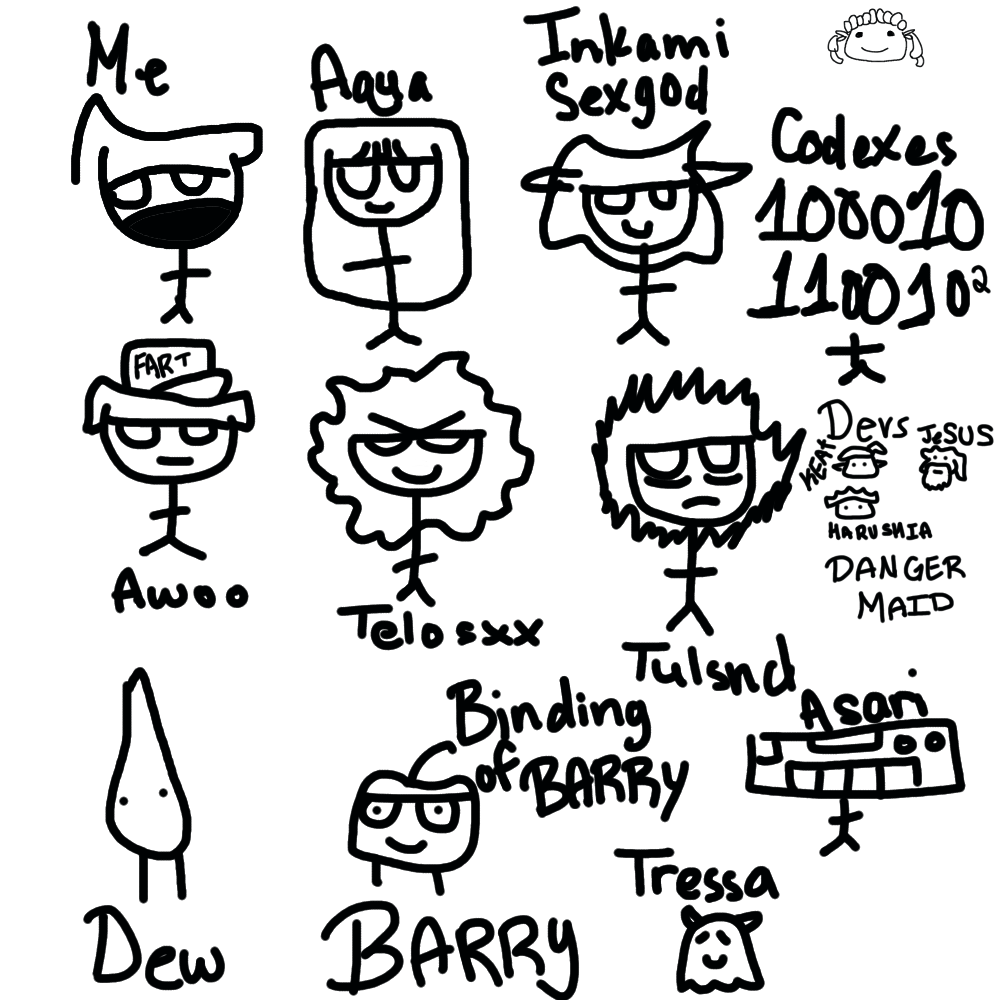 Me
Aqya
Inkami
Sexgod
Codexes
100010
110010²
FART
Awoo
Telosxx
Tulsnd
Devs
KEAH
JeSUS
HARUSHIA
DANGER
MAID
Dew
Binding
of BARRY
BARRY
Asari
Tressa